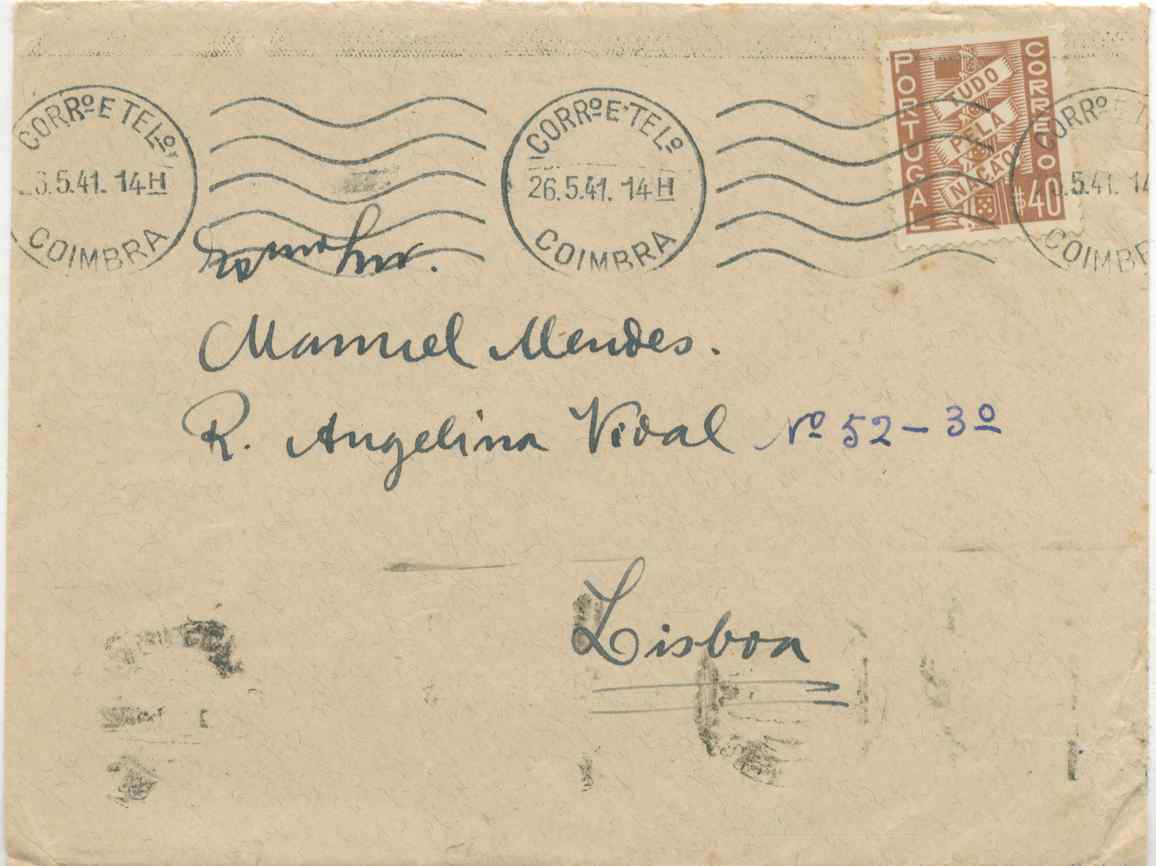 CORRº E TELº
26.5.41. 14H
COIMBRA
CORRº E TELº
26.5.41. 14H
COIMBRA
PORTUGAL
CORREIO
TUDO
PELA
NAÇÃO
$40
CORRº E T
6.5.41. 14
COIMB
Exmo Snr.
Manuel Mendes.
R. Angelina Vidal Nº 52-3º
Lisboa